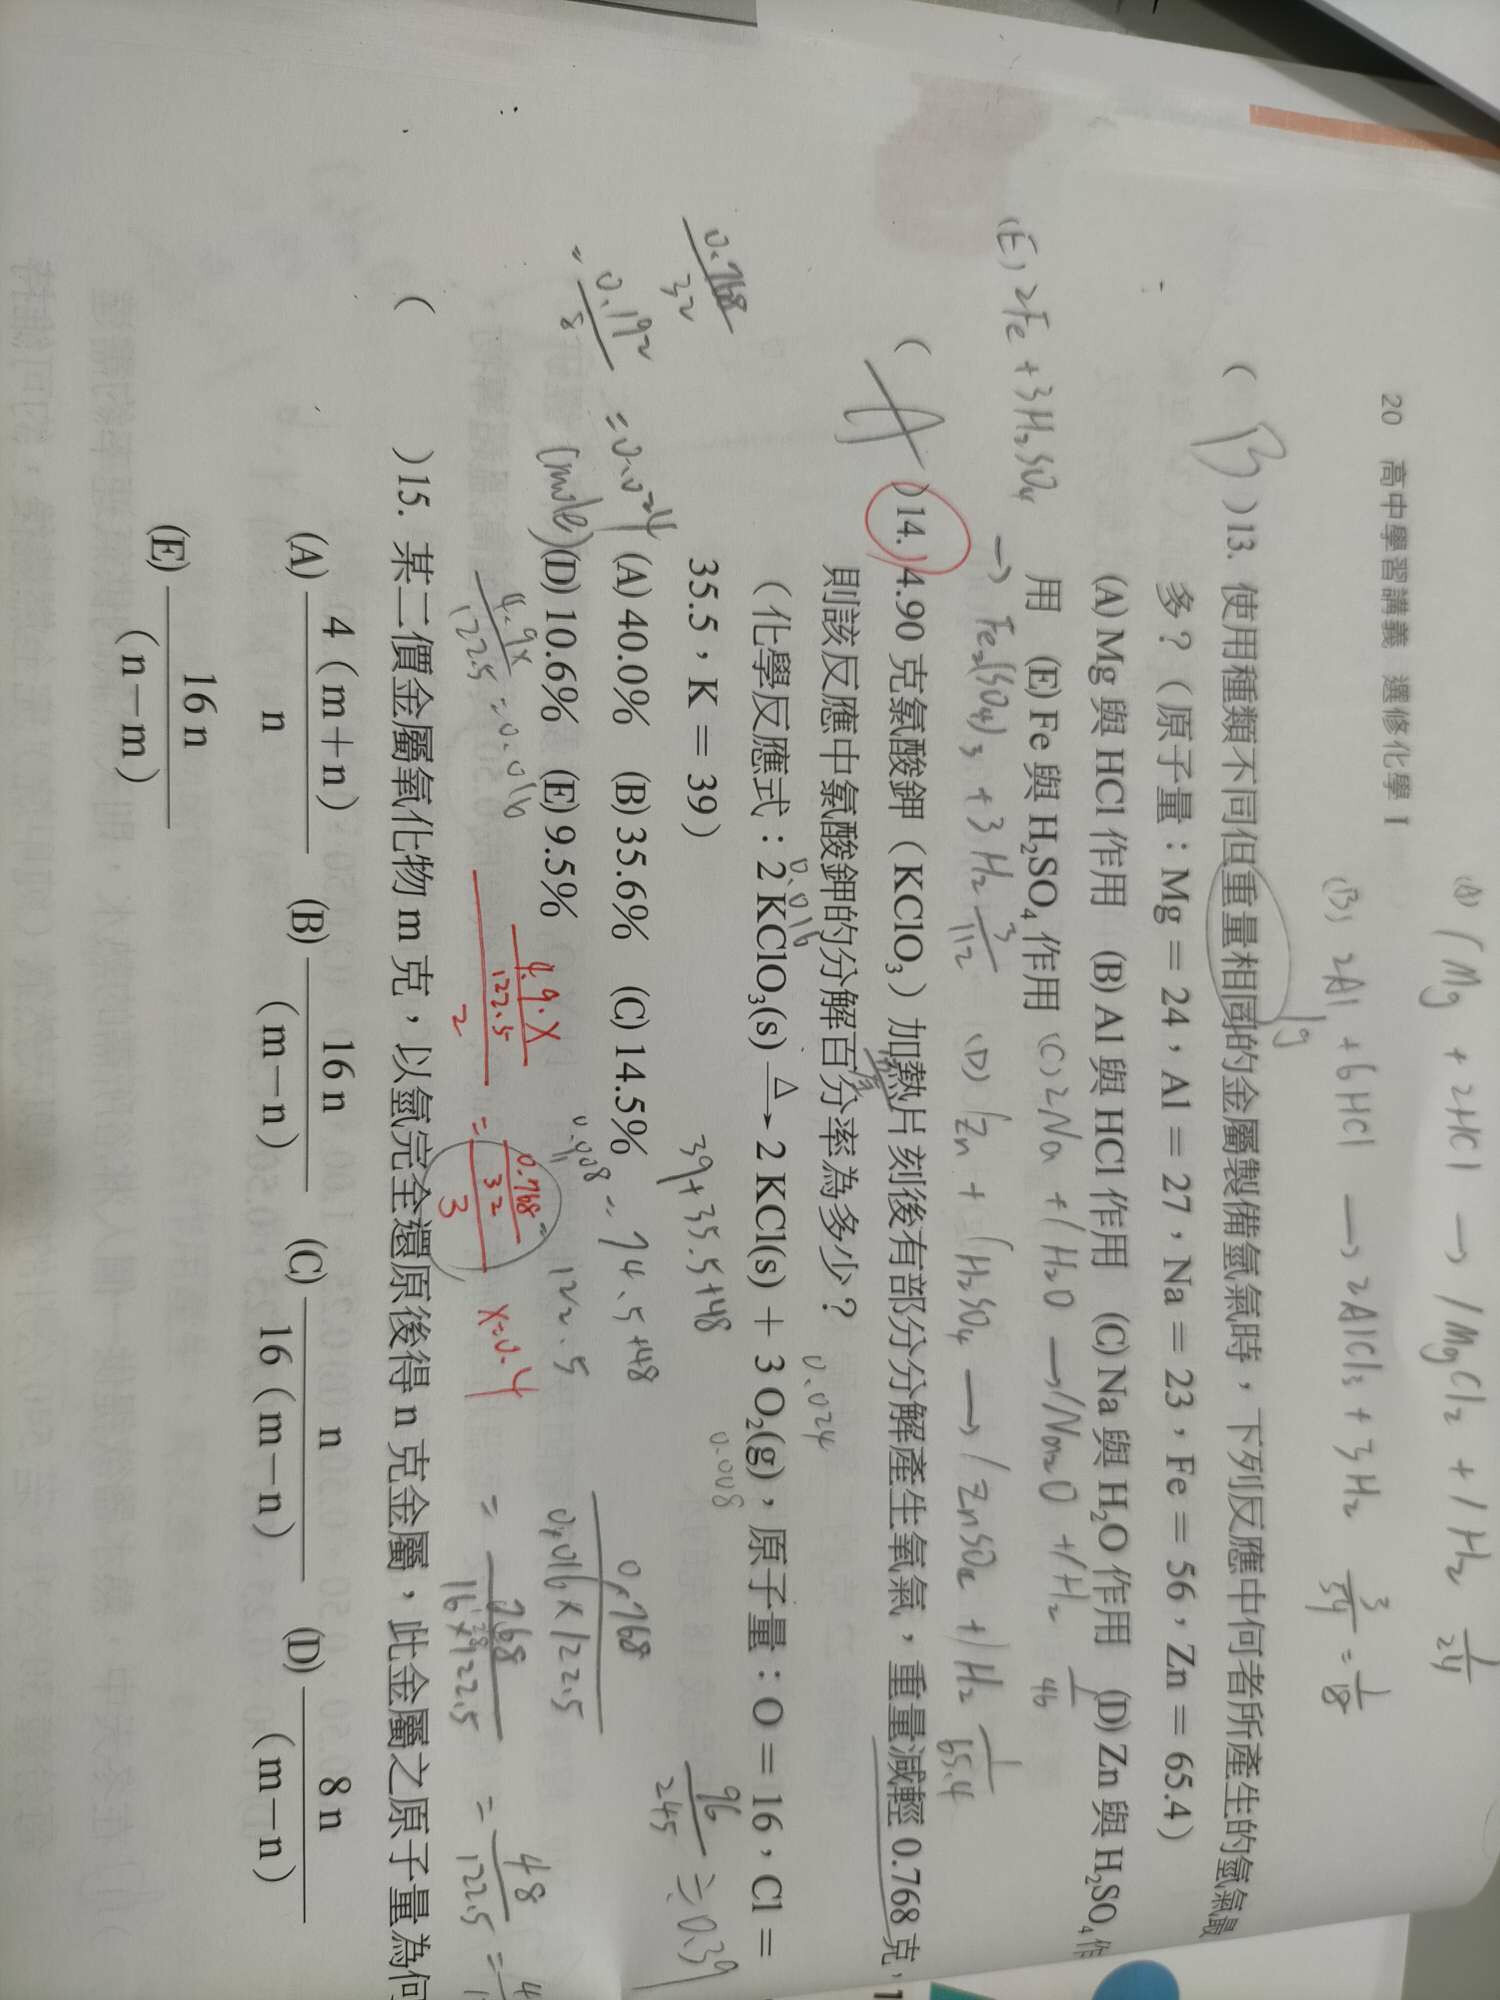 20 高中學習講義 選修化學 I
(A) 1Mg + 2HCl → 1MgCl₂ + 1H₂ 1/24
(B) 2Al + 6HCl → 2AlCl₃ + 3H₂ 3/54 = 1/18
1g
( B )13. 使用種類不同但重量相同的金屬製備氫氣時，下列反應中何者所產生的氫氣最
多？（原子量：Mg＝24，Al＝27，Na＝23，Fe＝56，Zn＝65.4）
(A) Mg 與 HCl 作用 (B) Al 與 HCl 作用 (C) Na 與 H₂O 作用 (D) Zn 與 H₂SO₄ 作
用 (E) Fe 與 H₂SO₄ 作用
(C) 2Na + 1H₂O → 1Na₂O + 1H₂ 1/46
(E) 2Fe + 3H₂SO₄ → Fe₂(SO₄)₃ + 3H₂ 3/112
(D) 1Zn + 1H₂SO₄ → 1ZnSO₄ + 1H₂ 1/65.4
( A )14. 4.90 克氯酸鉀（KClO₃）加熱片刻後有部分分解產生氧氣，重量減輕 0.768 克，
則該反應中氯酸鉀的分解百分率為多少？
0.016 0.024
（化學反應式：2 KClO₃(s) △→ 2 KCl(s) + 3 O₂(g)，原子量：O＝16，Cl＝
0.008
35.5，K＝39）
39+35.5+48
96/245 ≒ 0.39
(A) 40.0% (B) 35.6% (C) 14.5%
(D) 10.6% (E) 9.5%
0.768/32
= 0.192/8 = 0.024
(mole)
0.008
= 74.5+48
122.5
4.9x/122.5 = 0.016
4.9·x/122.5
2
= 0.768/32
3
x=0.4
0.768
0.016×122.5
= 768
16×122.5
= 48/122.5 =
( )15. 某二價金屬氧化物 m 克，以氫完全還原後得 n 克金屬，此金屬之原子量為何
(A) 4（m＋n）/n (B) 16 n/（m－n） (C) n/16（m－n） (D) 8 n/（m－n）
(E) 16 n/（n－m）